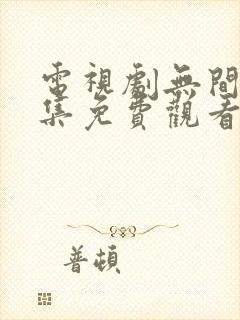 電視劇無間
集免費觀看
普頓